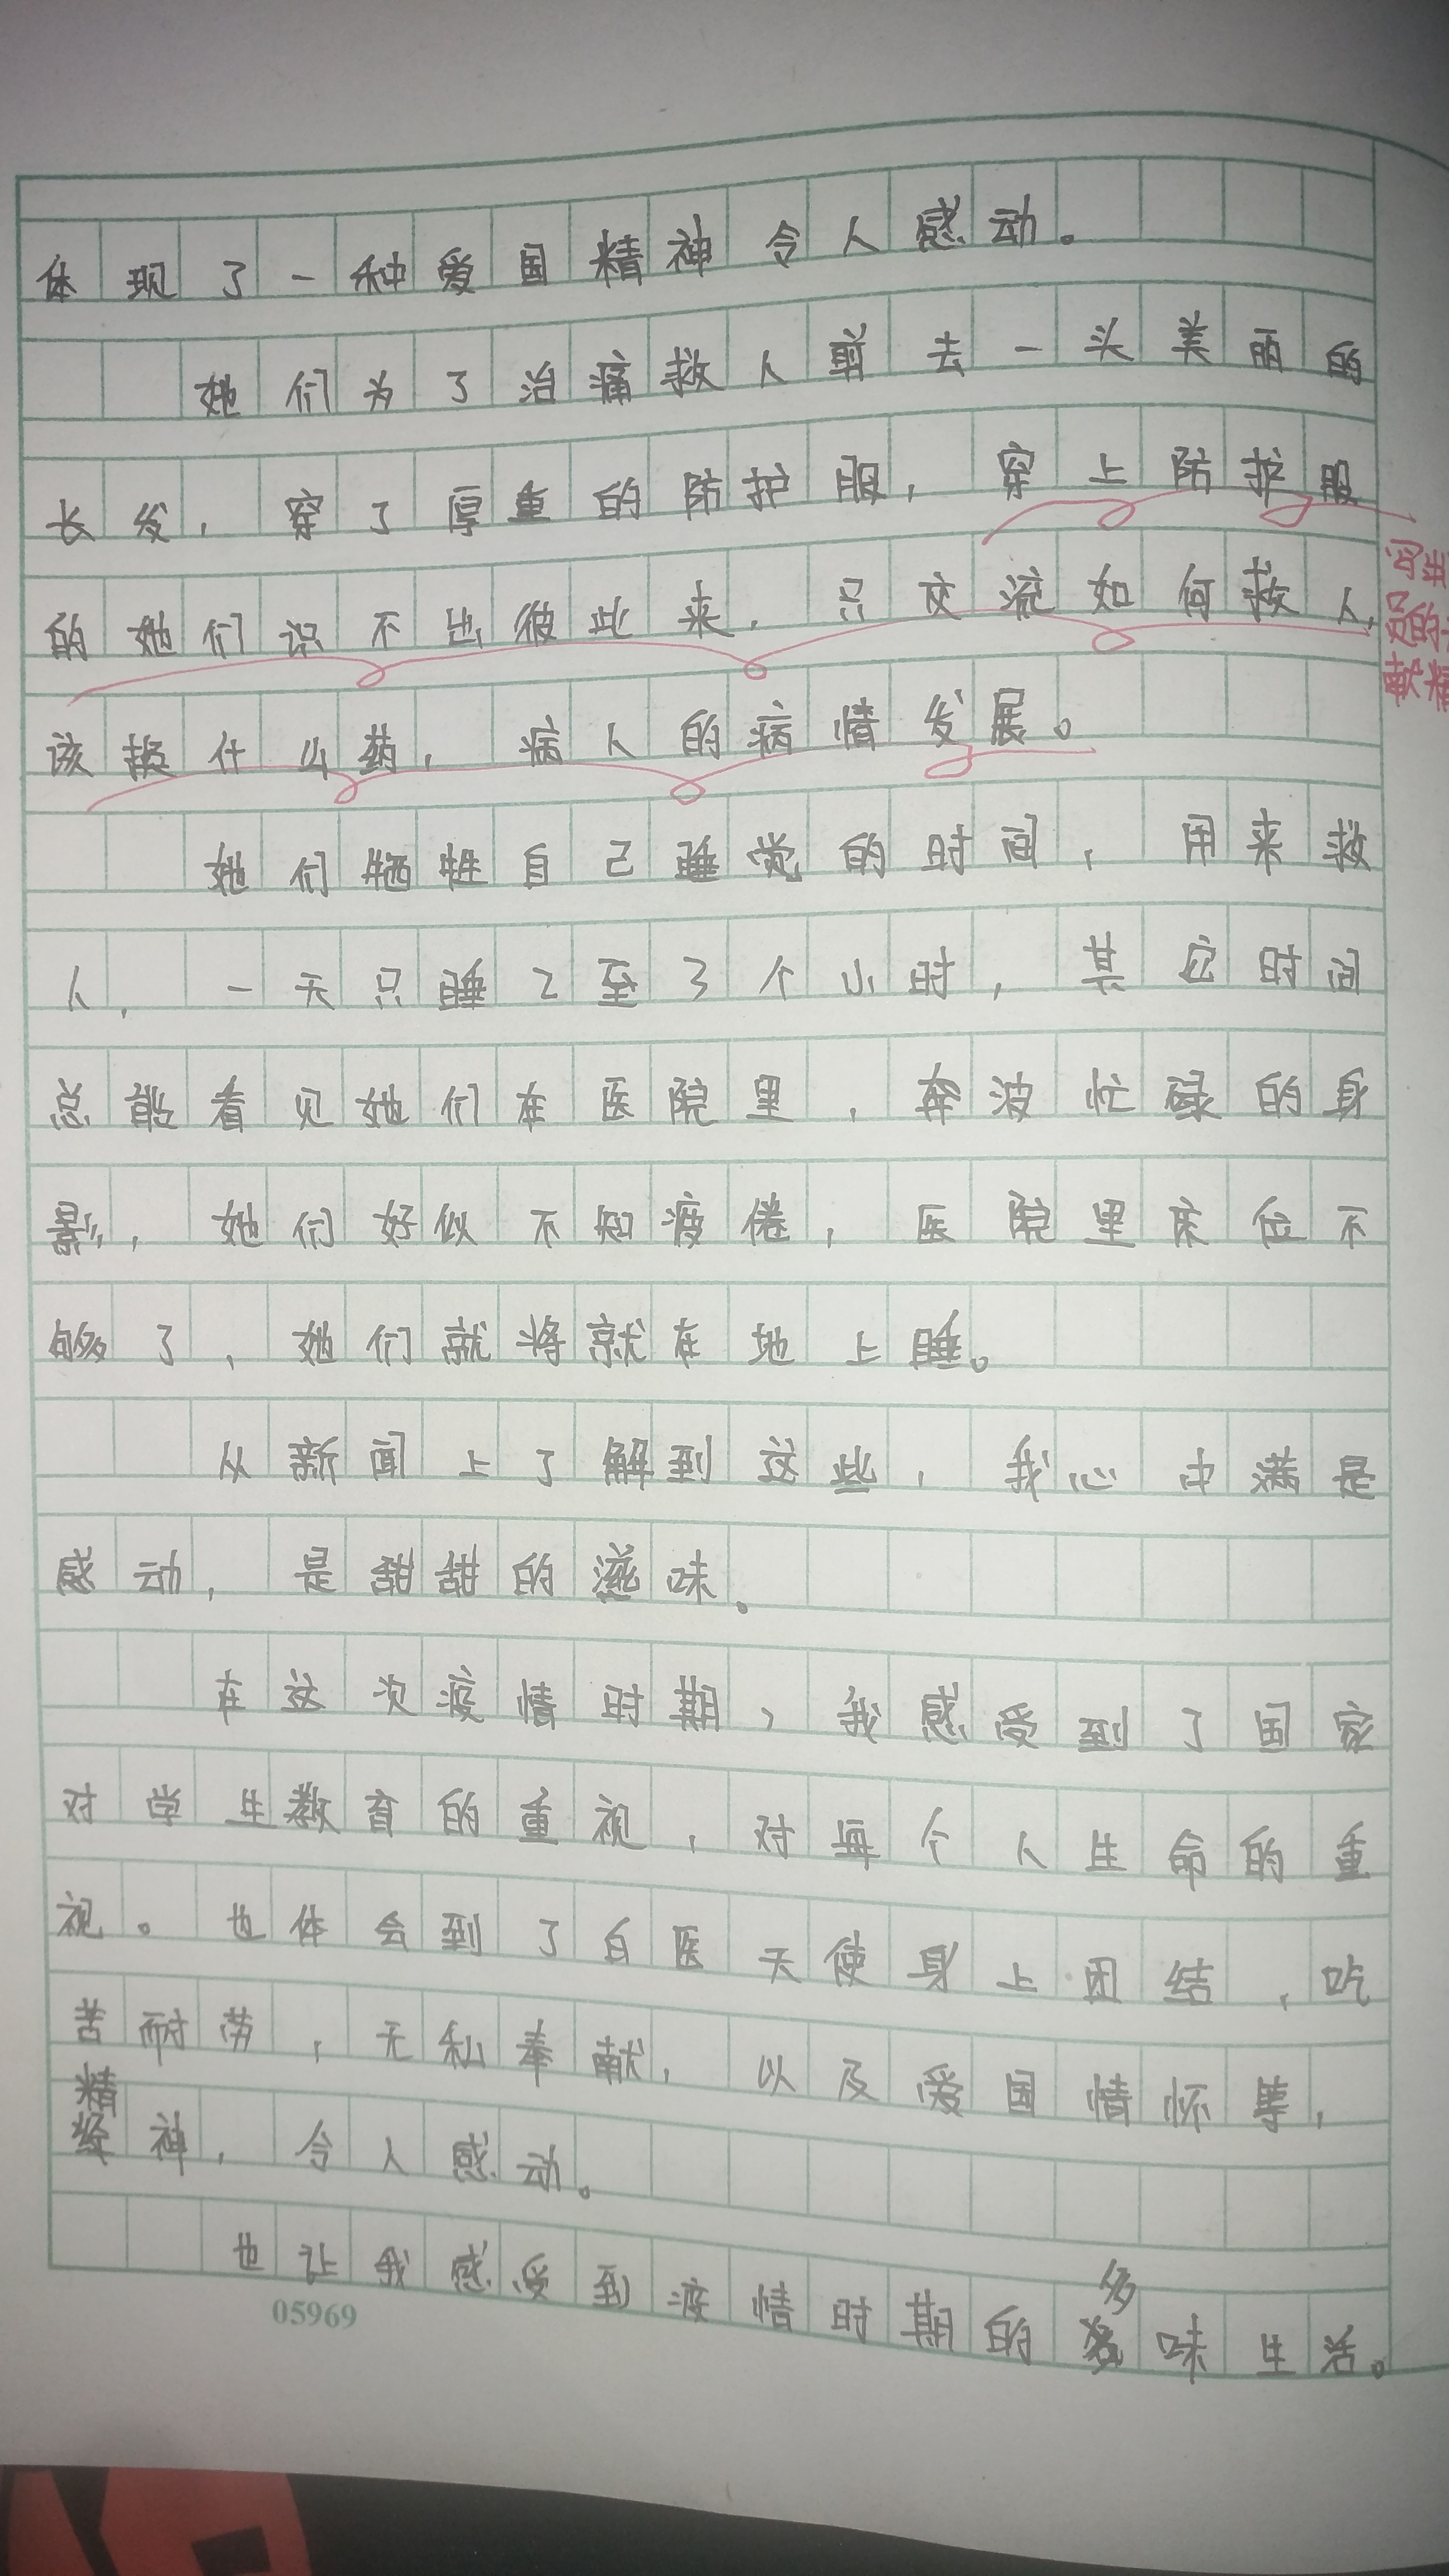 体现了一种爱国精神令人感动。
她们为了治病救人剪去一头美丽的
长发，穿了厚重的防护服，穿上防护服
的她们识不出彼此来，只交流如何救人，
该换什么药，病人的病情发展。
她们牺牲自己睡觉的时间，用来救
人，一天只睡2至3个小时，其它时间
总能看见她们在医院里，奔波忙碌的身
影，她们好似不知疲倦，医院里床位不
够了，她们就将就在地上睡。
从新闻上了解到这些，我心中满是
感动，是甜甜的滋味。
在这次疫情时期，我感受到了国家
对学生教育的重视，对每个人生命的重
视。也体会到了白医天使身上团结，吃
苦耐劳，无私奉献，以及爱国情怀等，
精神，令人感动。
也让我感受到疫情时期的多味生活。
05969